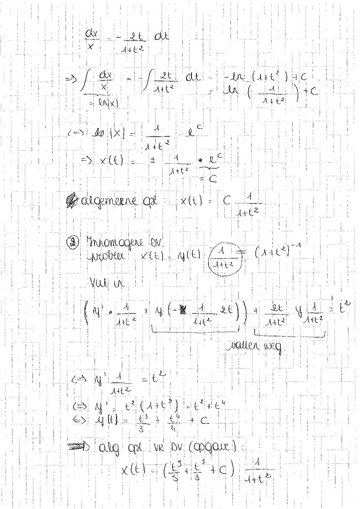 dx/x = - 2t/(1+t²) dt
=> ∫ dx/x = - ∫ 2t/(1+t²) dt = - ln (1+t²) + C
= ln|x| = ln ( 1/(1+t²) ) + C
<=> |x| = 1/(1+t²) e^C
=> x(t) = ± 1/(1+t²) • e^C
= C
algemene opl x(t) = C 1/(1+t²)
② Inhomogene DV
probeer x(t) = y(t) 1/(1+t²) = (1+t²)⁻¹
Vul in
( y' • 1/(1+t²) + y (- 1/(1+t²) 2t) ) + 2t/(1+t²) y 1/(1+t²) = t²
vallen weg
<=> y' 1/(1+t²) = t²
<=> y' = t² (1+t²) = t² + t⁴
<=> y(t) = t³/3 + + C
=> alg opl vd DV (opgave)
x(t) = ( t³/3 + + C ) 1/(1+t²)